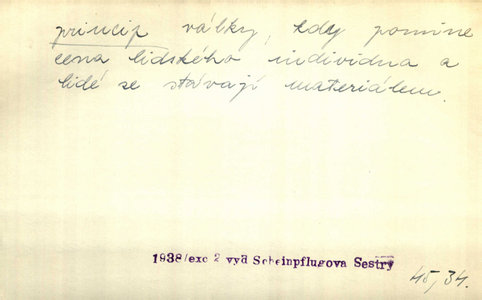 princip války, kdy pomine
cena lidského individua a
lidé se stávají materiálem.
1938/exc 2 vyd Scheinpflugova Sestry
45,34.